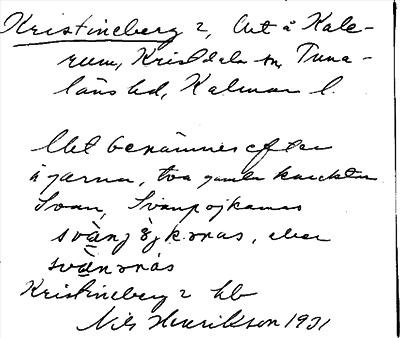 Kristineberg 2, Cut å Kale-
rum, Kristdala sn, Tuna-
läns hd, Kalmar l.
Cut benämnes efter
ägarna, två gamla karaktär
Svan, Svanpojkarnas
svànpòjkarnas, eller
svànarnas
Kristineberg 2 hb
Nils Henrikson 1921